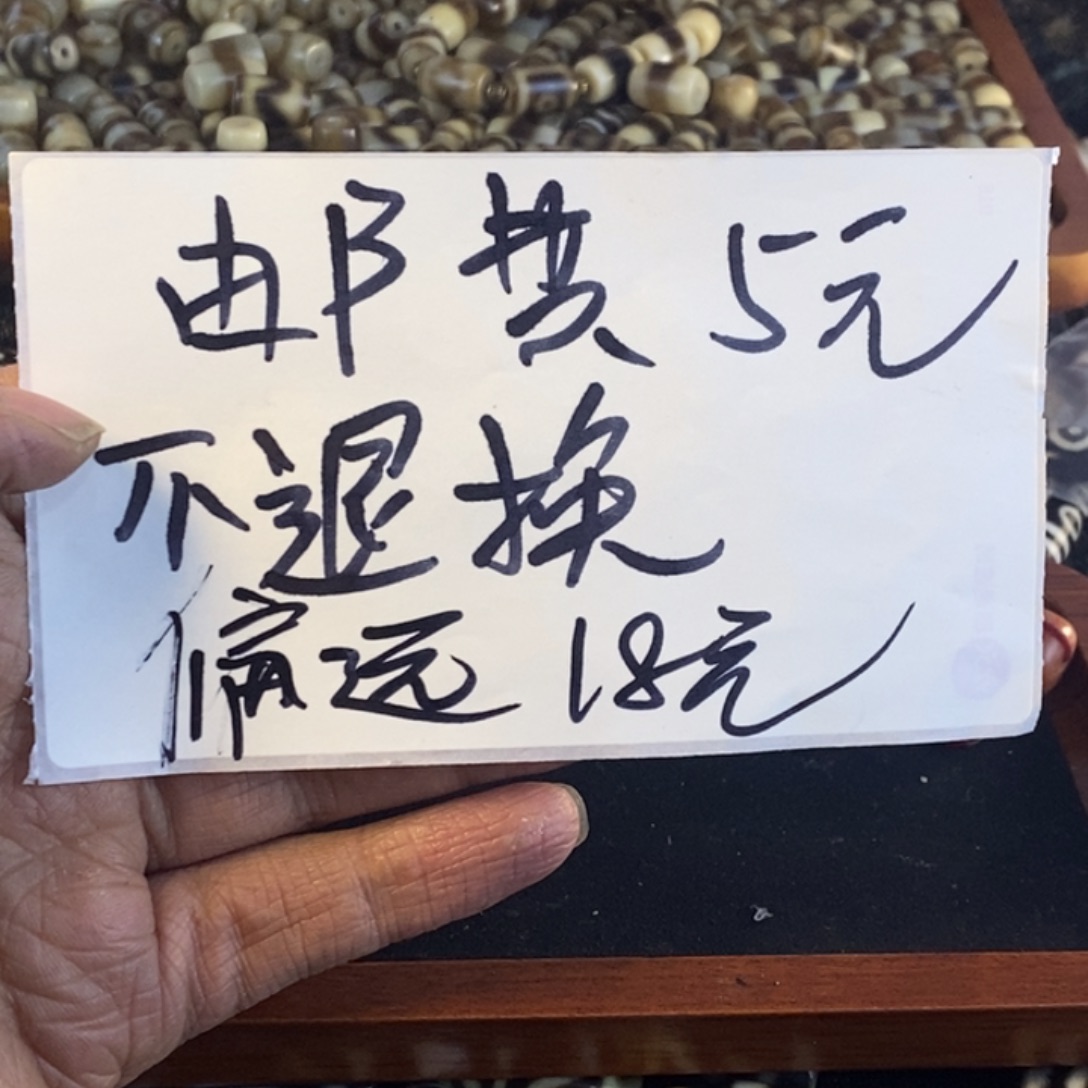 邮费5元
不退换
偏远18元